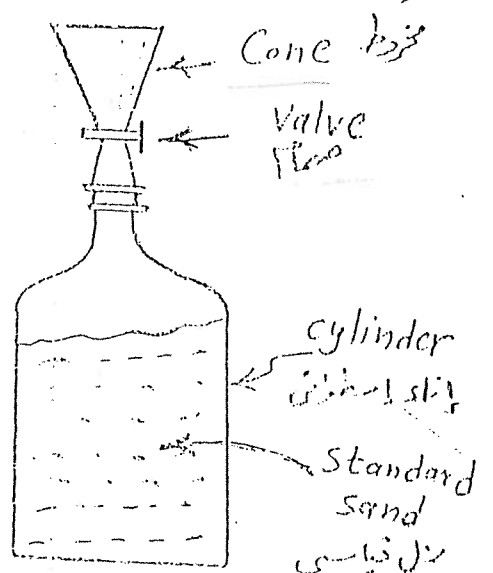 Cone مخروط
Valve
صمام
cylinder
إناء إسطواني
Standard
sand
رمل قياسي